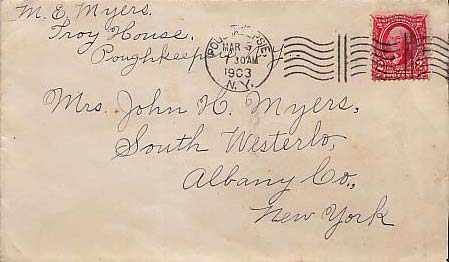 M. E. Myers.
Troy House.
Poughkeepsie, N.Y.
MAR 5
7 30 AM
1903
N.Y.
Mrs. John H. Myers,
South Westerlo,
Albany Co.,
New York